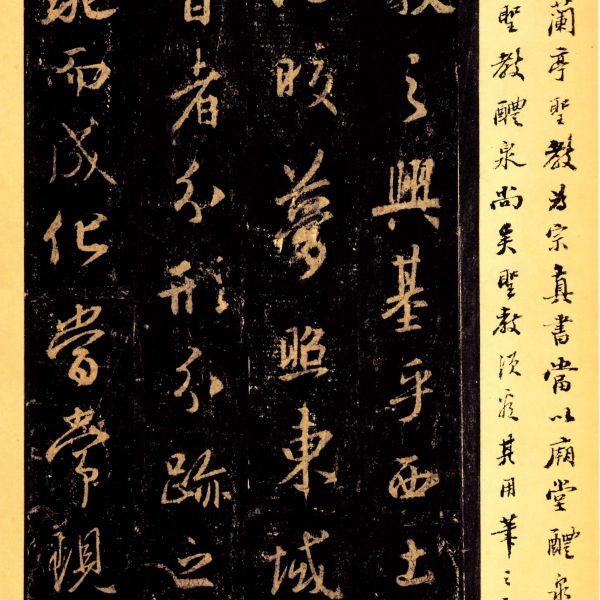 蘭亭聖教為宗真書當以廟堂醴泉
聖教醴泉尚矣聖教須窺其用筆之
教之興基乎西土
皎夢照東域
昔者分形分跡之
馳而成化當常現